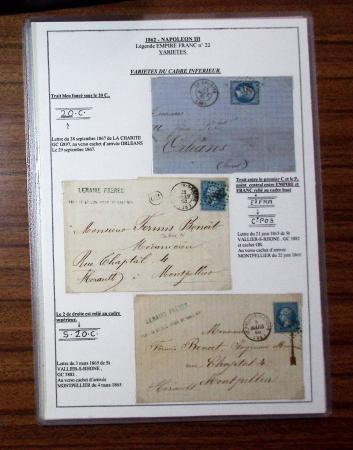 1862 - NAPOLEON III
Légende EMPIRE FRANC n° 22
VARIETES
VARIETES DU CADRE INFERIEUR.
Trait bleu foncé sous le 20 C.
20.C
Lettre du 28 septembre 1867 de LA CHARITE
GC 0897, au verso cachet d'arrivée ORLEANS
Le 29 septembre 1867.
Orléans
Trait entre le premier C et le P,
point central entre EMPIRE et
FRANC relié au cadre haut
Lettre du 21 juin 1865 de St
VALLIER-S-RHONE , GC 3882
et cachet OR.
Au verso cachet d'arrivée
MONTPELLIER du 22 juin 1865
LEMAIRE FRERES
Monsieur Fermis Benoit
Mécanicien
Rue Chaptal 4
(Hérault) Montpellier
Le 2 de droite est relié au cadre
supérieur.
S.20.C
Lettre du 3 mars 1865 de St
VALLIER-S-RHONE ,
GC 3882 .
Au verso cachet d'arrivée
MONTPELLIER du 4 mars 1865.
LEMAIRE FRERES
Monsieur
Rue Chaptal 4
Hérault Montpellier